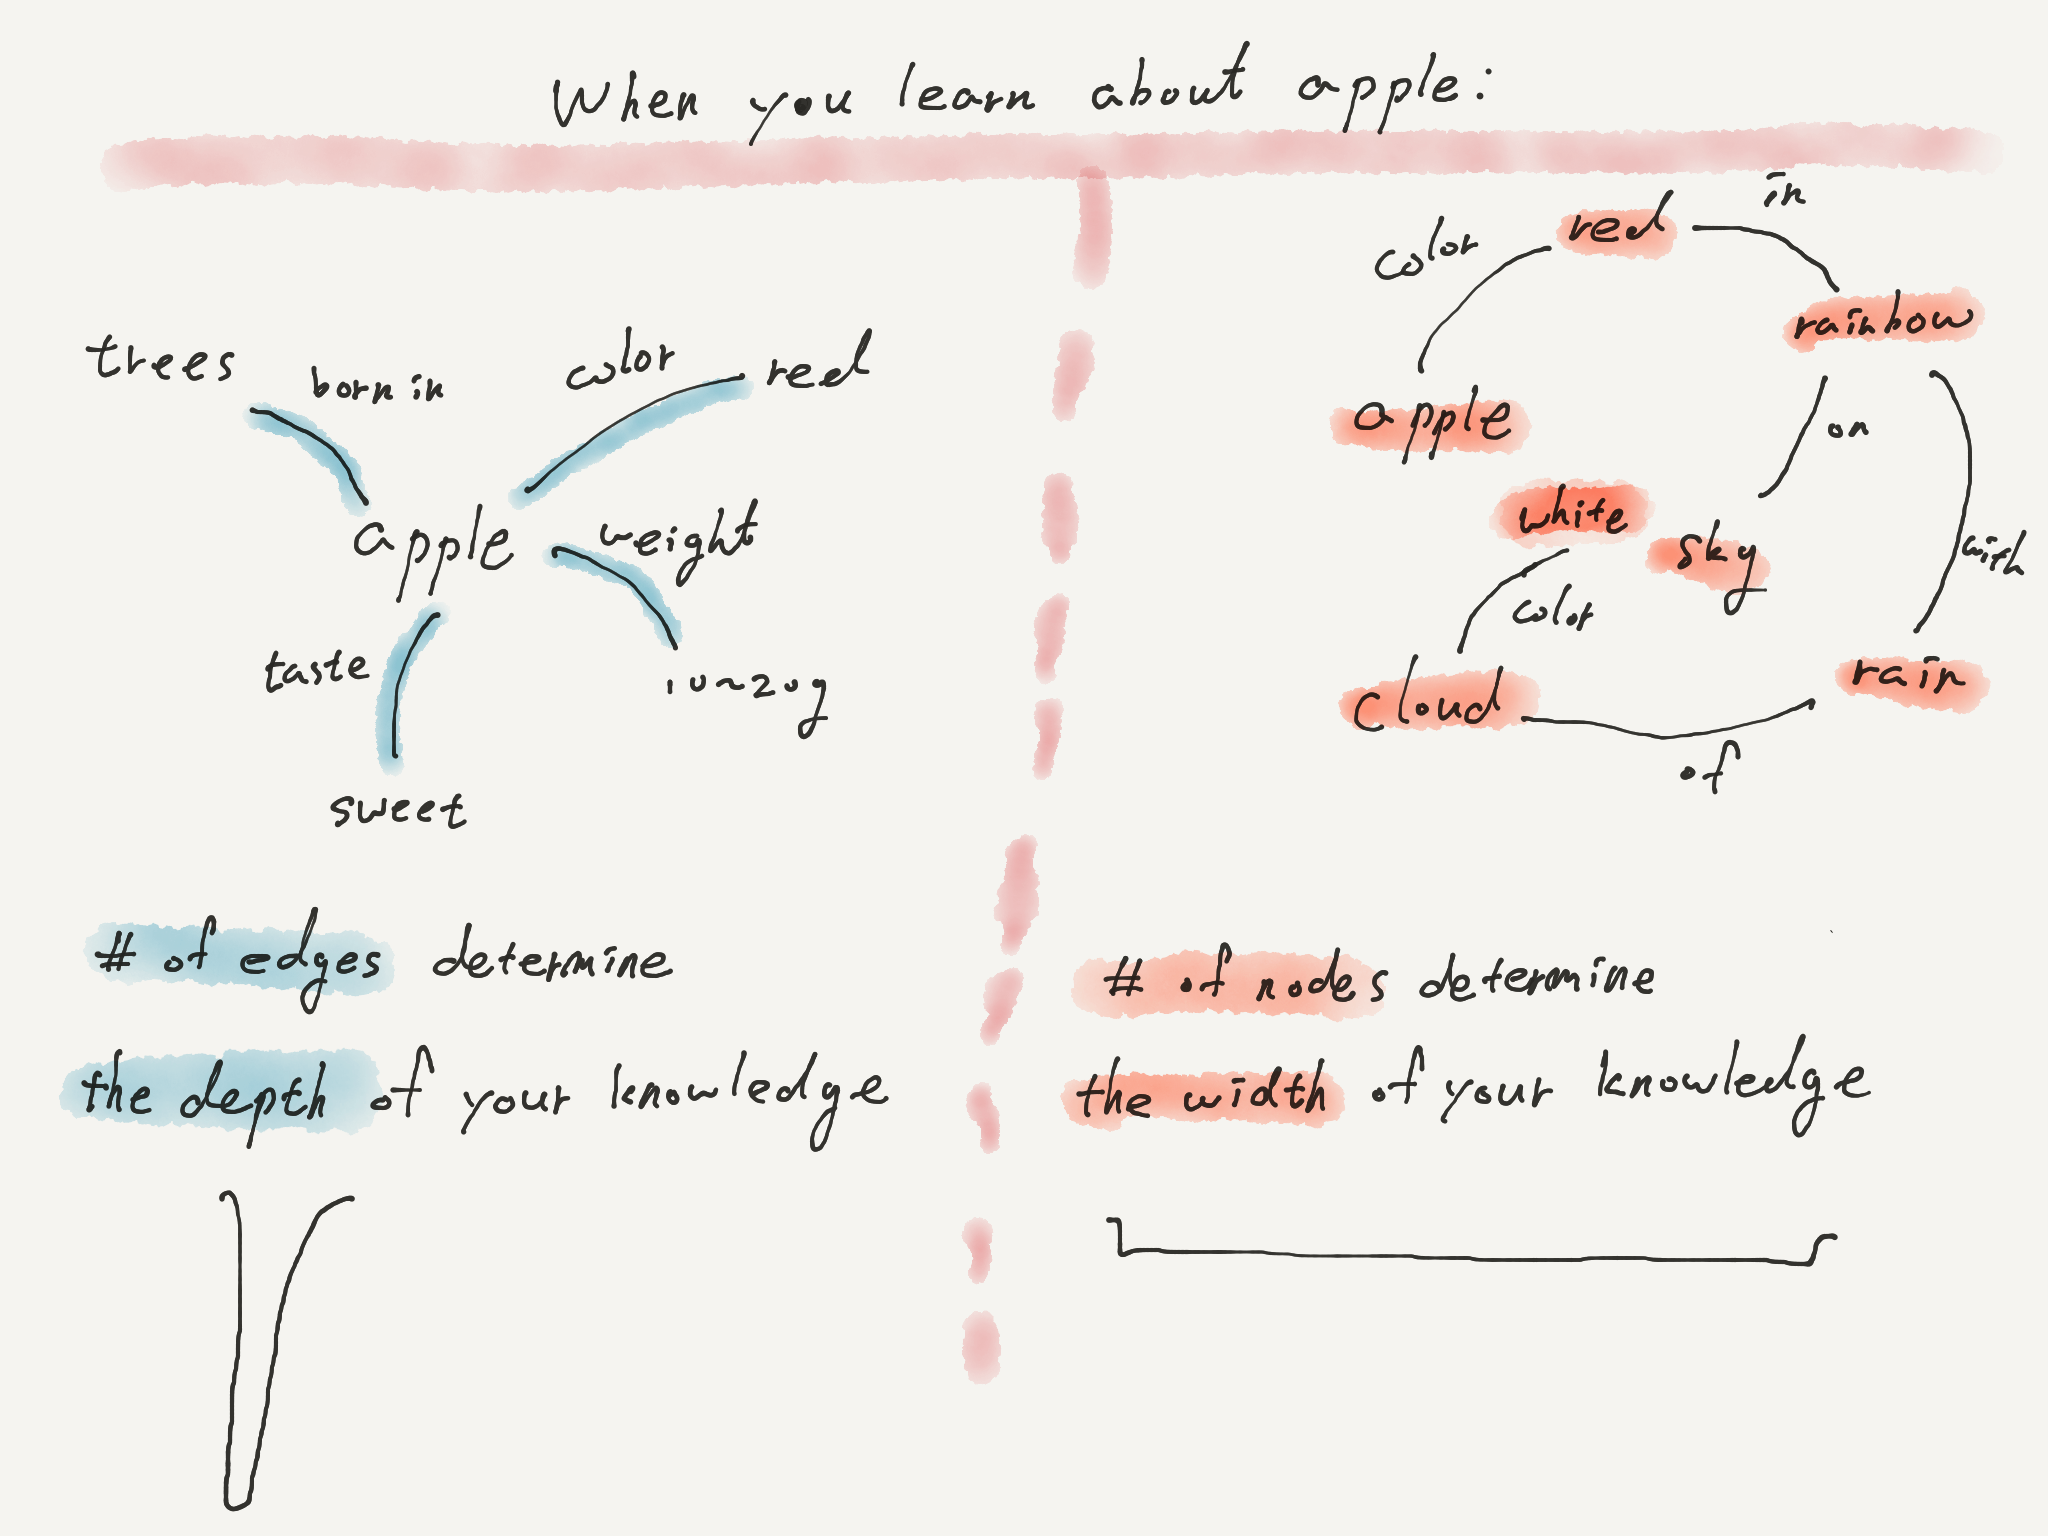 When you learn about apple:
trees
born in
color
red
apple
weight
taste
10~20g
sweet
# of edges determine
the depth of your knowledge
in
red
color
rainbow
apple
on
white
sky
with
color
rain
cloud
of
# of nodes determine
the width of your knowledge